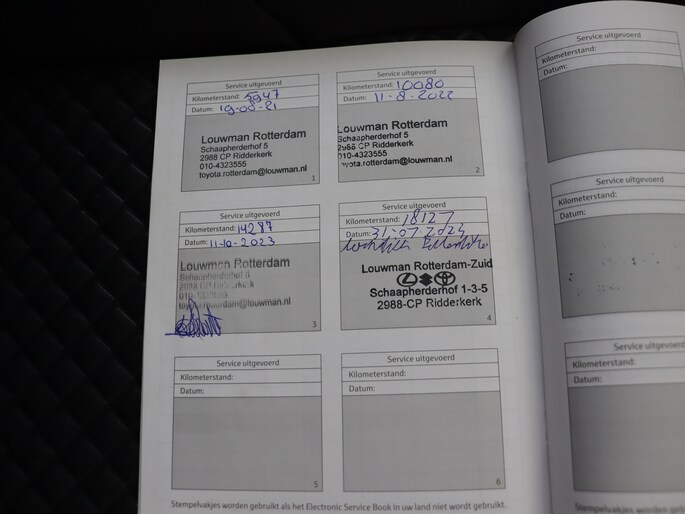 Service uitgevoerd
Kilometerstand: 5947
Datum: 19-08-21
Louwman Rotterdam
Schaapherderhof 5
2988 CP Ridderkerk
010-4323555
toyota.rotterdam@louwman.nl
1
Service uitgevoerd
Kilometerstand: 10080
Datum: 11-8-2022
Louwman Rotterdam
Schaapherderhof 5
2988 CP Ridderkerk
010-4323555
toyota.rotterdam@louwman.nl
2
Service uitgevoerd
Kilometerstand: 14287
Datum: 11-10-2023
Louwman Rotterdam
Schaapherderhof 5
2988 CP Ridderkerk
toyota.rotterdam@louwman.nl
3
Service uitgevoerd
Kilometerstand: 18127
Datum: 31-07-2024
Louwman Rotterdam-Zuid
Schaapherderhof 1-3-5
2988-CP Ridderkerk
4
Service uitgevoerd
Kilometerstand:
Datum:
5
Service uitgevoerd
Kilometerstand:
Datum:
6
Stempelvakjes worden gebruikt als het Electronic Service Book in uw land niet wordt gebruikt.
Service uitgevoerd
Kilometerstand:
Datum:
Service uitgevoerd
Kilometerstand:
Datum:
Service uitgevoerd
Kilometerstand:
Datum: